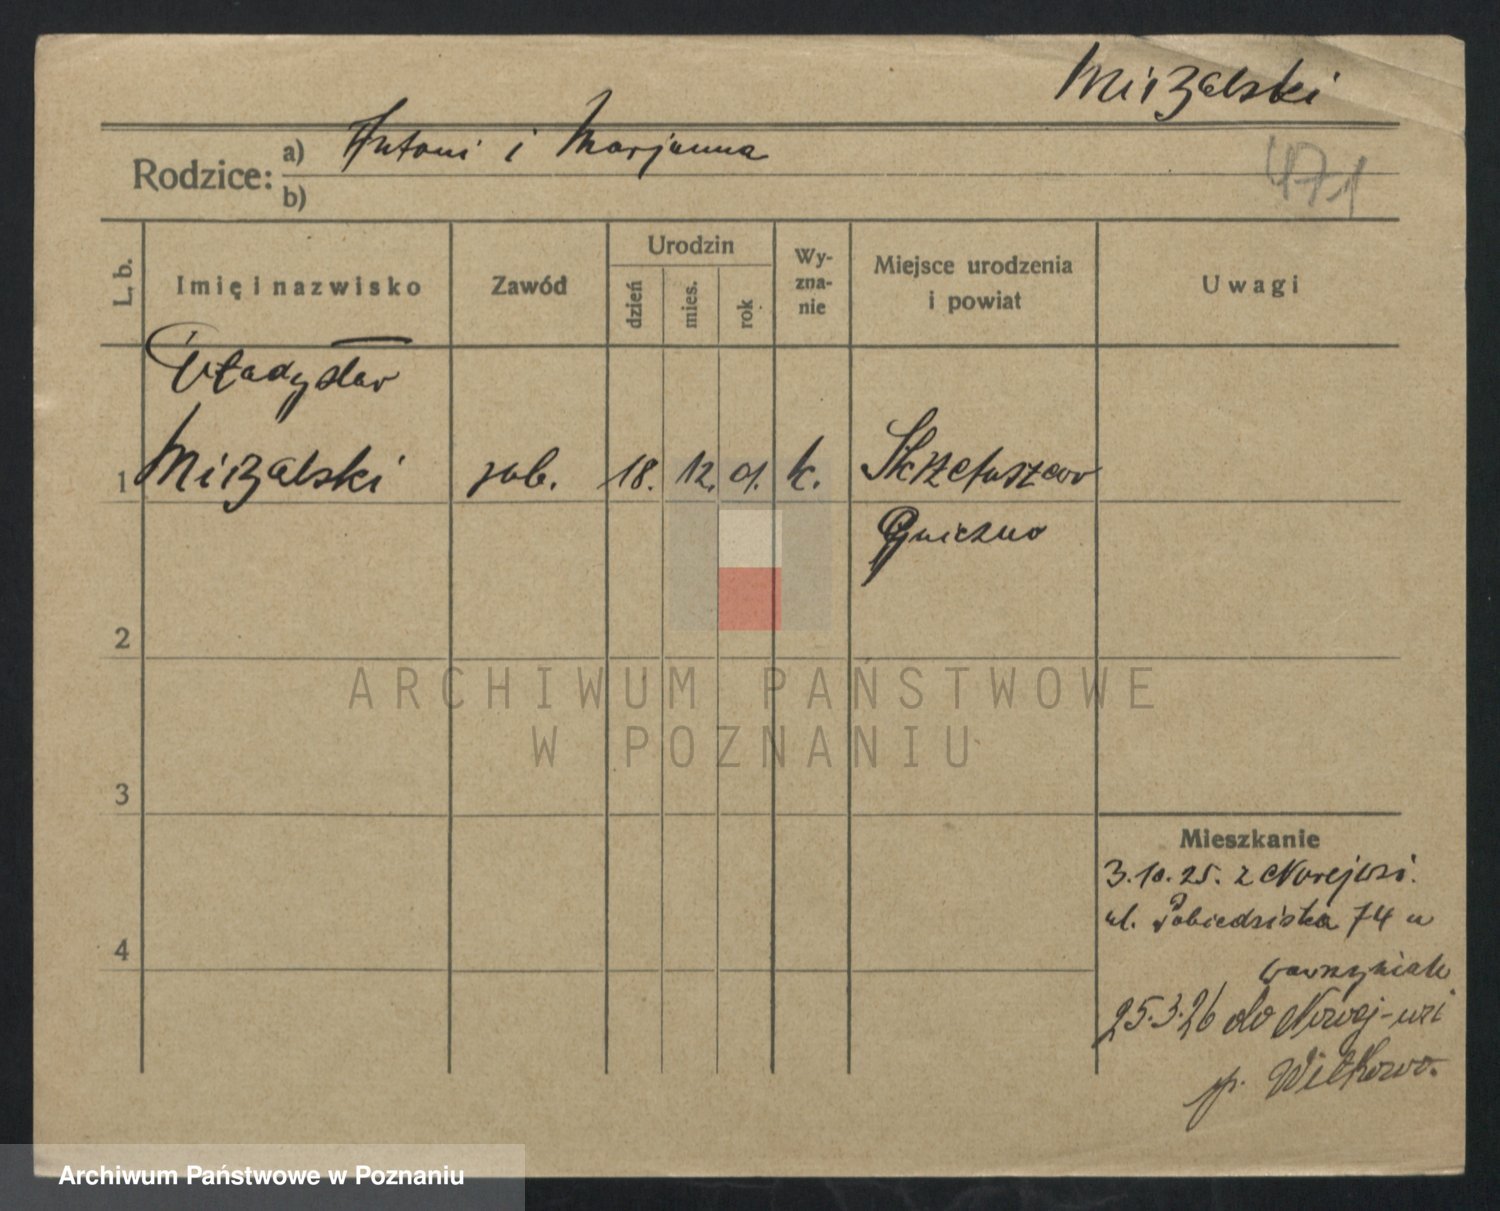 Mirzalski
Rodzice: a) Antoni i Marjanna
b)
471
L. b.
Imię i nazwisko
Zawód
Urodzin
dzień
mies.
rok
Wy-
zna-
nie
Miejsce urodzenia
i powiat
Uwagi
Władysław
1 Mirzalski rob. 18. 12. 01. k. Skrzetuszewo
Gniezno
2
3
4
Mieszkanie
3.10.25. z Norejwsi.
ul. Pobiedziska 74 u
Wawrzyniak
25.3.26 do Nowej-wsi
p. Witkowo.
ARCHIWUM PAŃSTWOWE
W POZNANIU
Archiwum Państwowe w Poznaniu